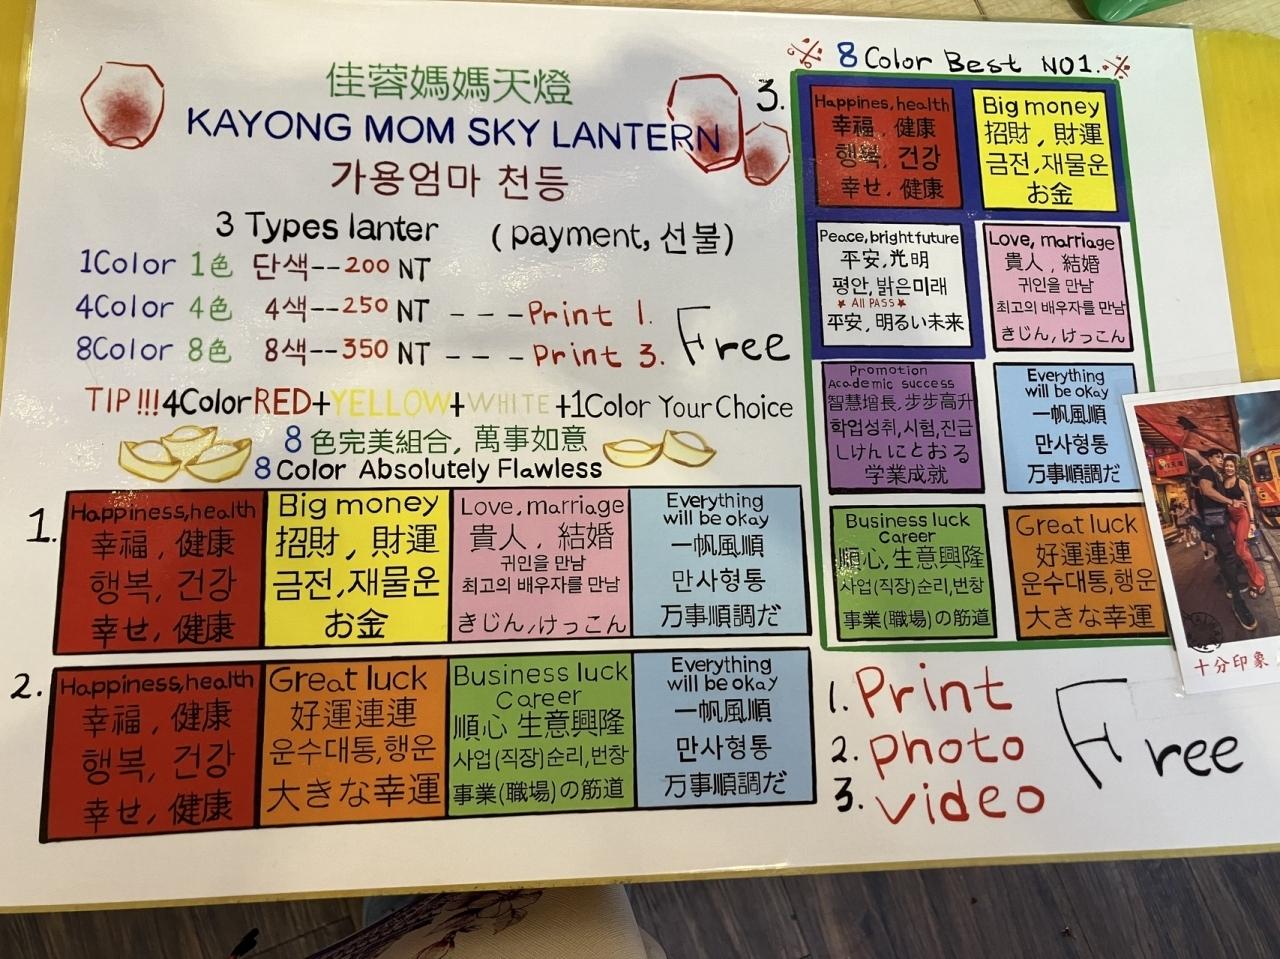 佳蓉媽媽天燈
KAYONG MOM SKY LANTERN
가용엄마 천등
3 Types lanter (payment, 선불)
1Color 1色 단색--200 NT
4Color 4色 4색--250 NT ---Print 1.
8Color 8色 8색--350 NT ---Print 3.
Free
TIP!!! 4Color RED+YELLOW+WHITE+1Color Your Choice
8 色完美組合, 萬事如意
8 Color Absolutely Flawless
1.
Happiness,health
幸福, 健康
행복, 건강
幸せ, 健康
Big money
招財, 財運
금전,재물운
お金
Love, marriage
貴人, 結婚
귀인을 만남
최고의 배우자를 만남
きじん,けっこん
Everything
will be okay
一帆風順
만사형통
万事順調だ
2.
Happiness,health
幸福, 健康
행복, 건강
幸せ, 健康
Great luck
好運連連
운수대통,행운
大きな幸運
Business luck
Career
順心 生意興隆
사업(직장)순리,번창
事業(職場)の筋道
Everything
will be okay
一帆風順
만사형통
万事順調だ
8 Color Best NO1.
3.
Happines, health
幸福, 健康
행복, 건강
幸せ, 健康
Big money
招財, 財運
금전,재물운
お金
Peace, bright future
平安,光明
평안, 밝은미래
★ All PASS ★
平安, 明るい未来
Love, marriage
貴人, 結婚
귀인을 만남
최고의 배우자를 만남
きじん, けっこん
Promotion
Academic success
智慧增長, 步步高升
학업성취,시험,진급
しけんにとおる
学業成就
Everything
will be okay
一帆風順
만사형통
万事順調だ
Business luck
Career
順心, 生意興隆
사업(직장)순리,번창
事業(職場)の筋道
Great luck
好運連連
운수대통,행운
大きな幸運
1. Print
2. photo
3. video
Free
十分印象